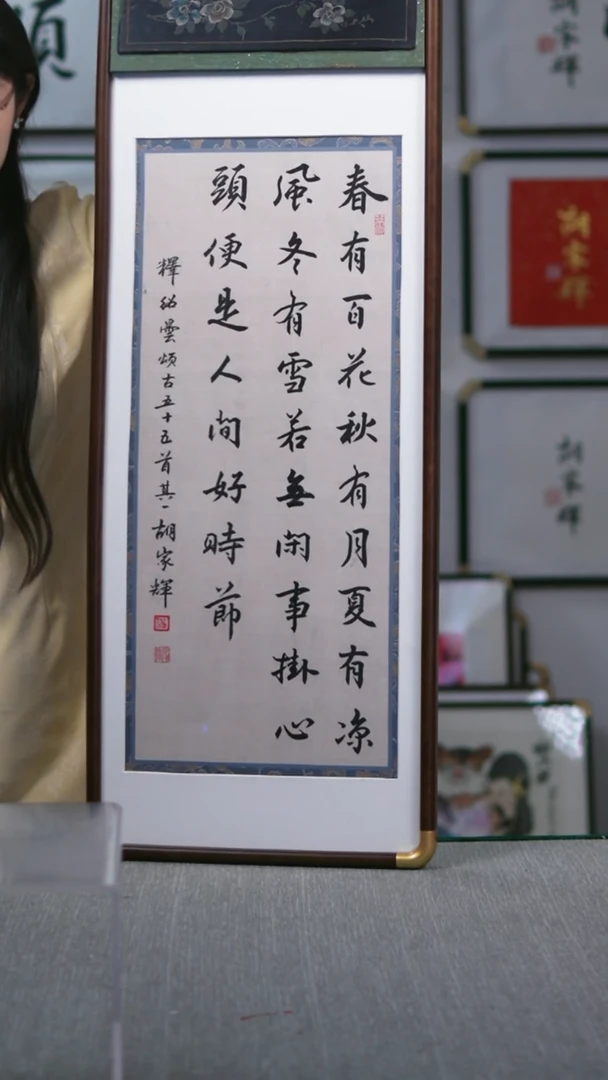 春有百花秋有月夏有凉
風冬有雪若無閑事掛心
頭便是人間好時節
釋紹曇頌古五十五首其一胡家輝
胡家輝
胡家輝
胡家輝